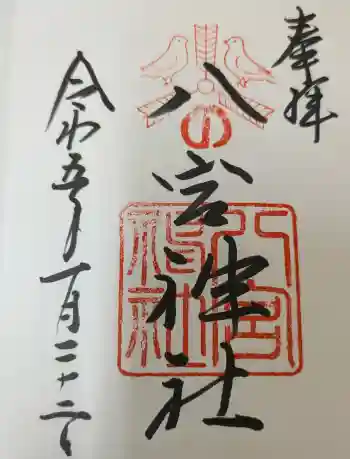 奉拝
八宮神社
八宮
神社
令和五年一月二十二日